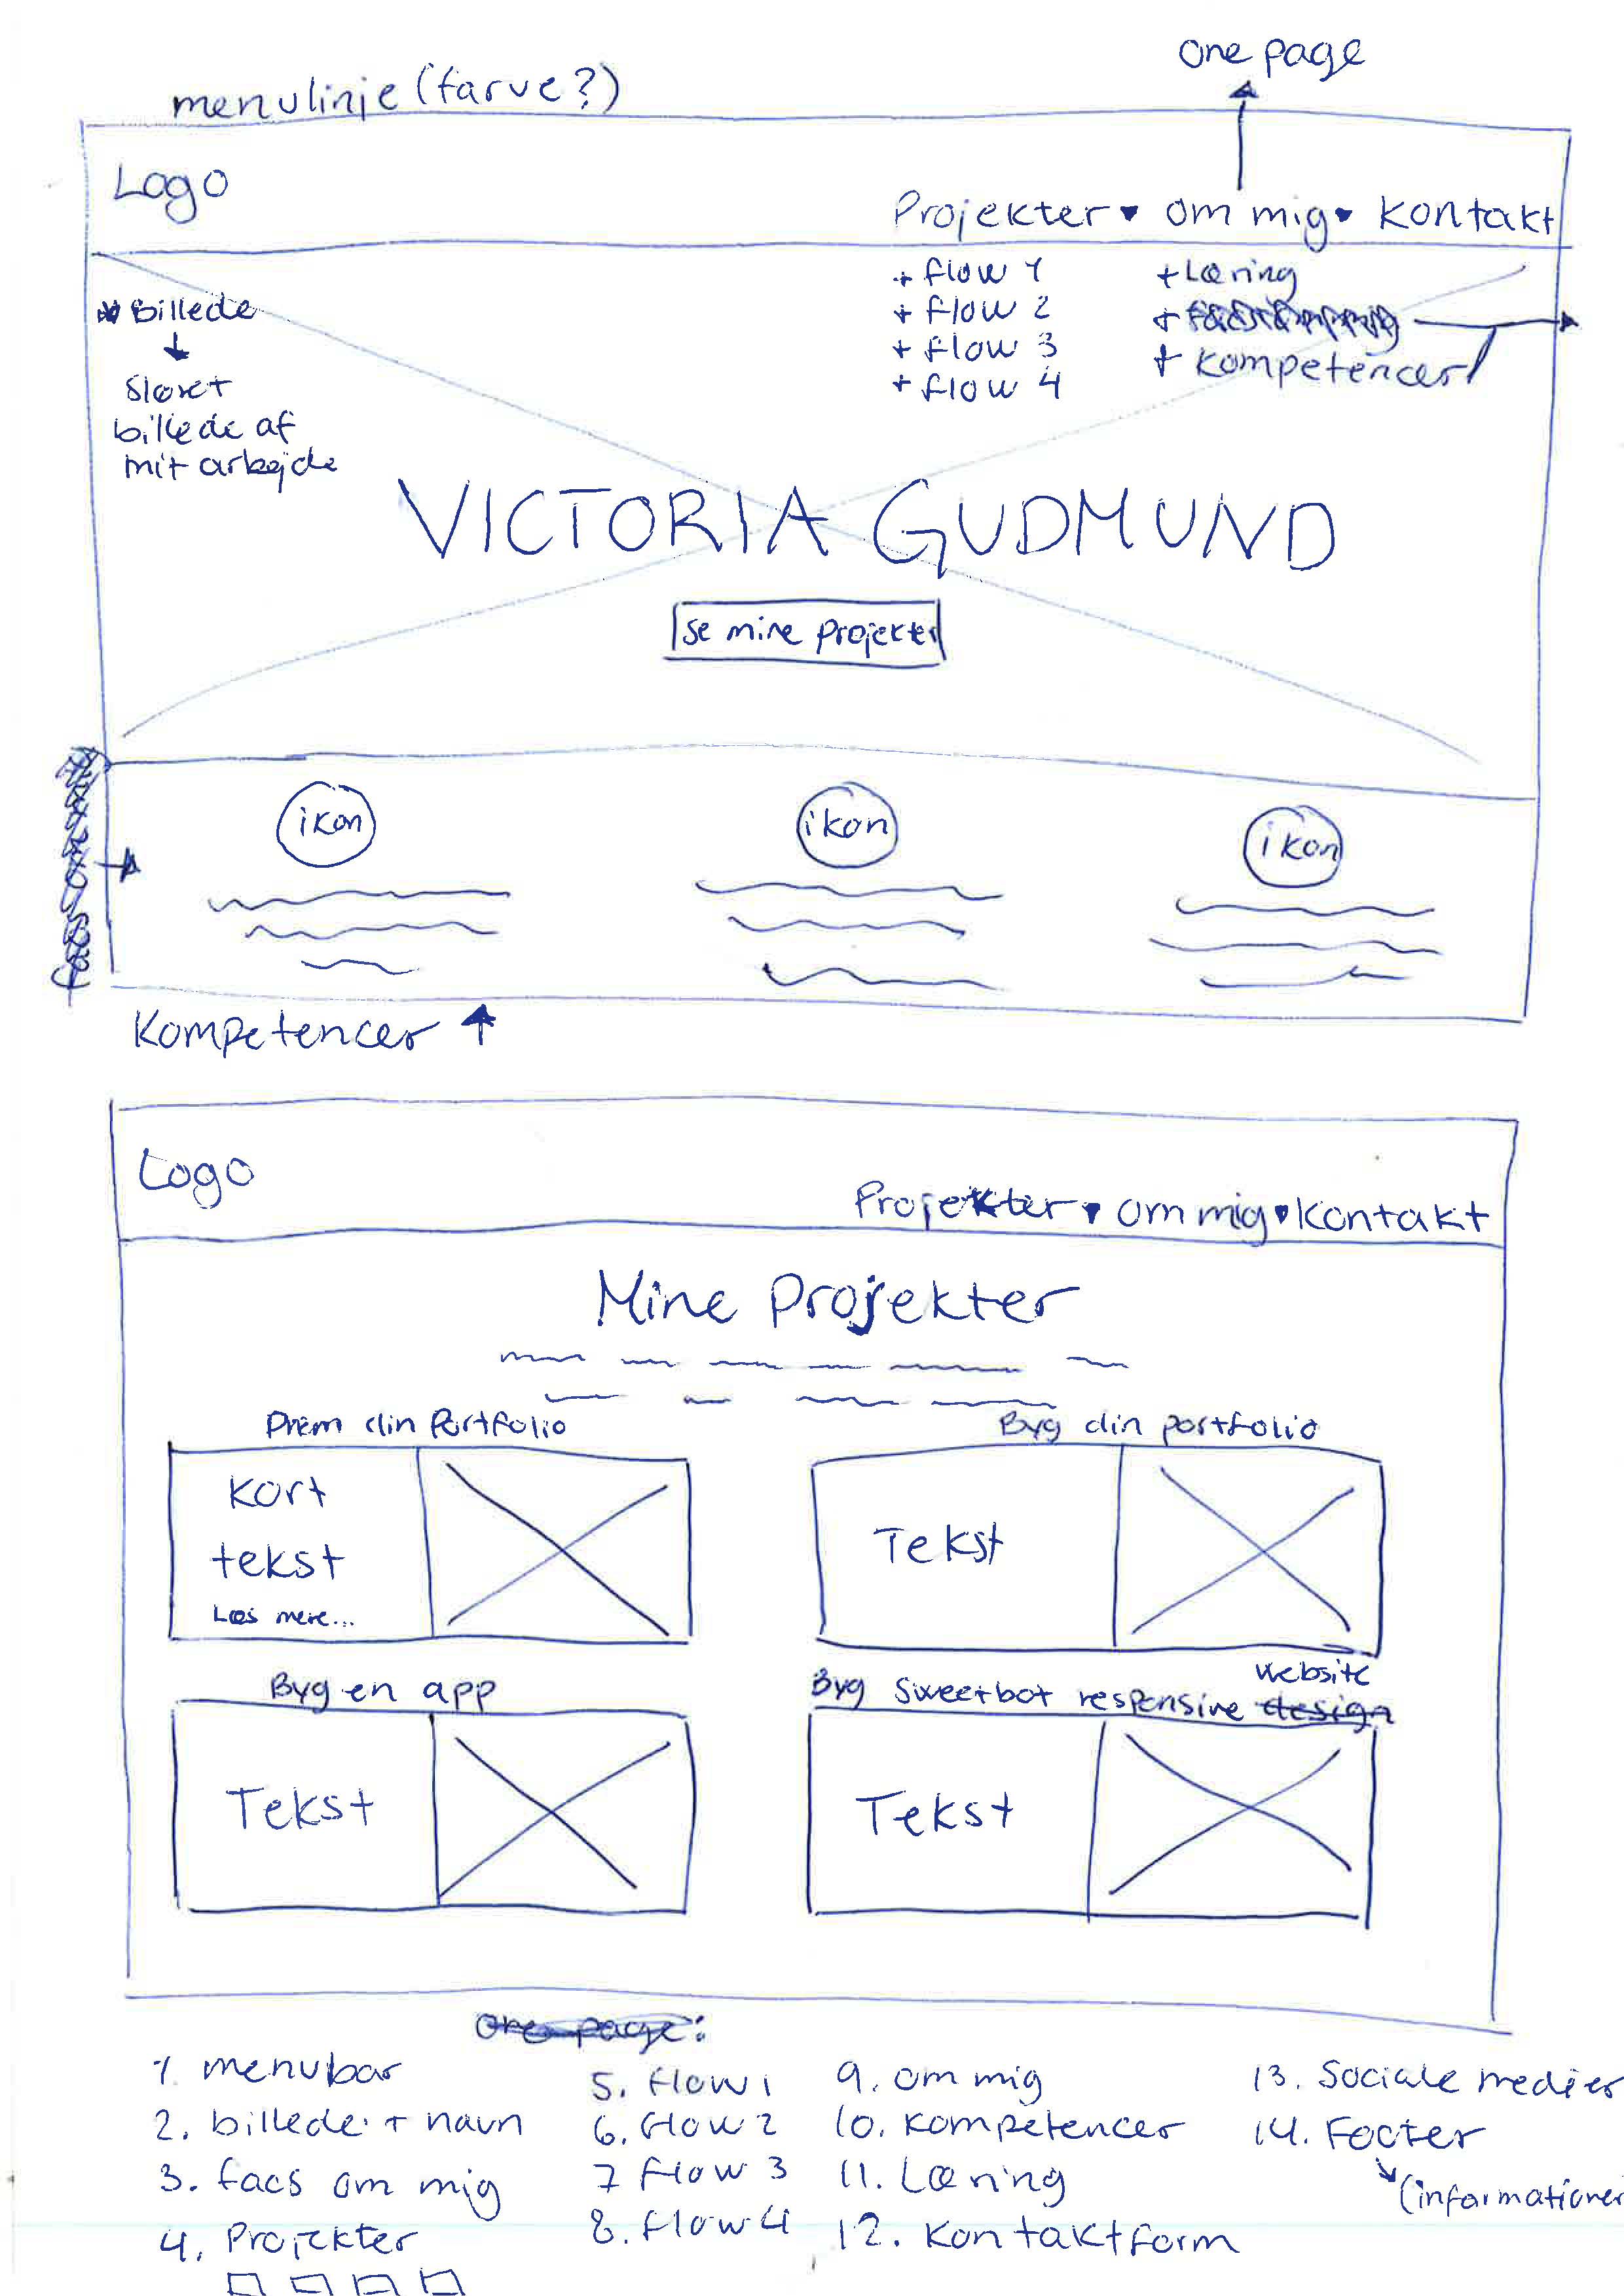 one page
menulinje (farve?)
Logo
Projekter ▾ om mig ▾ Kontakt
+ flow 1
+ flow 2
+ flow 3
+ flow 4
+ Læring
+ kompetencer
* Billede
sløret
billede af
mit arbejde
VICTORIA GUDMUND
Se mine projekter
ikon
ikon
ikon
Kompetencer
Logo
Projekter ▾ om mig ▾ Kontakt
Mine Projekter
Drøm din Portfolio
Byg din portfolio
Kort
tekst
Læs mere...
Tekst
Byg en app
Byg Sweetbot responsive design website
Tekst
Tekst
one page:
1. menubar
2. billede + navn
3. facs om mig
4. Projekter
5. flow 1
6. flow 2
7 flow 3
8. flow 4
9. om mig
10. kompetencer
11. Læring
12. Kontaktform
13. Sociale medier
14. Footer
(informationer